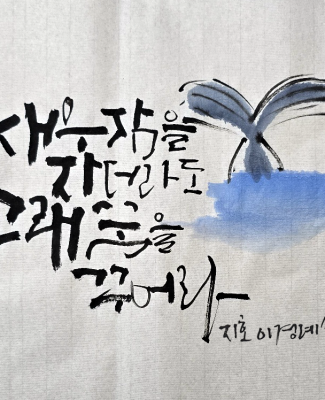 새우잠을
자더라도
고래꿈을
꾸어라
지호 이경례